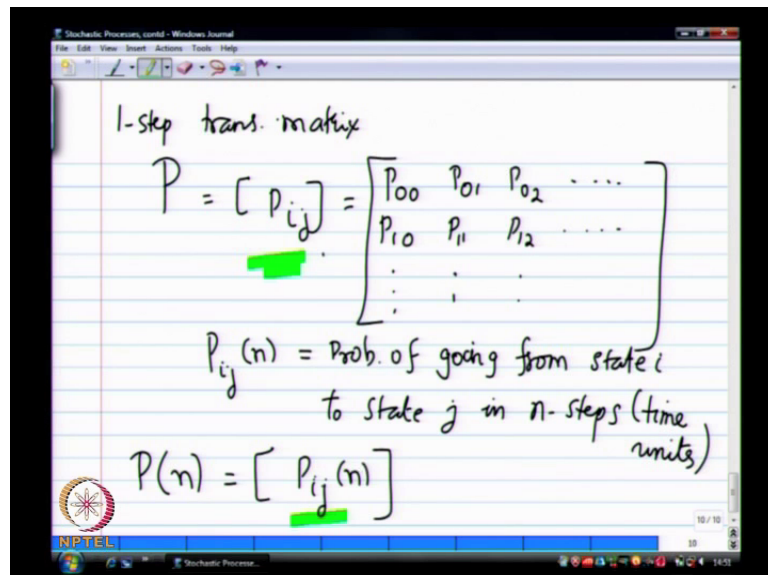 Stochastic Processes, contd - Windows Journal
File Edit View Insert Actions Tools Help
1-step trans. matrix
P = [ P_ij ] = [ P_00 P_01 P_02 ....
P_10 P_11 P_12 ....
: . .
: . . ]
P_ij (n) = Prob. of going from state i
to state j in n-steps (time
units)
P(n) = [ P_ij (n) ]
NPTEL
10 / 10
10
Stochastic Processe...
14:51